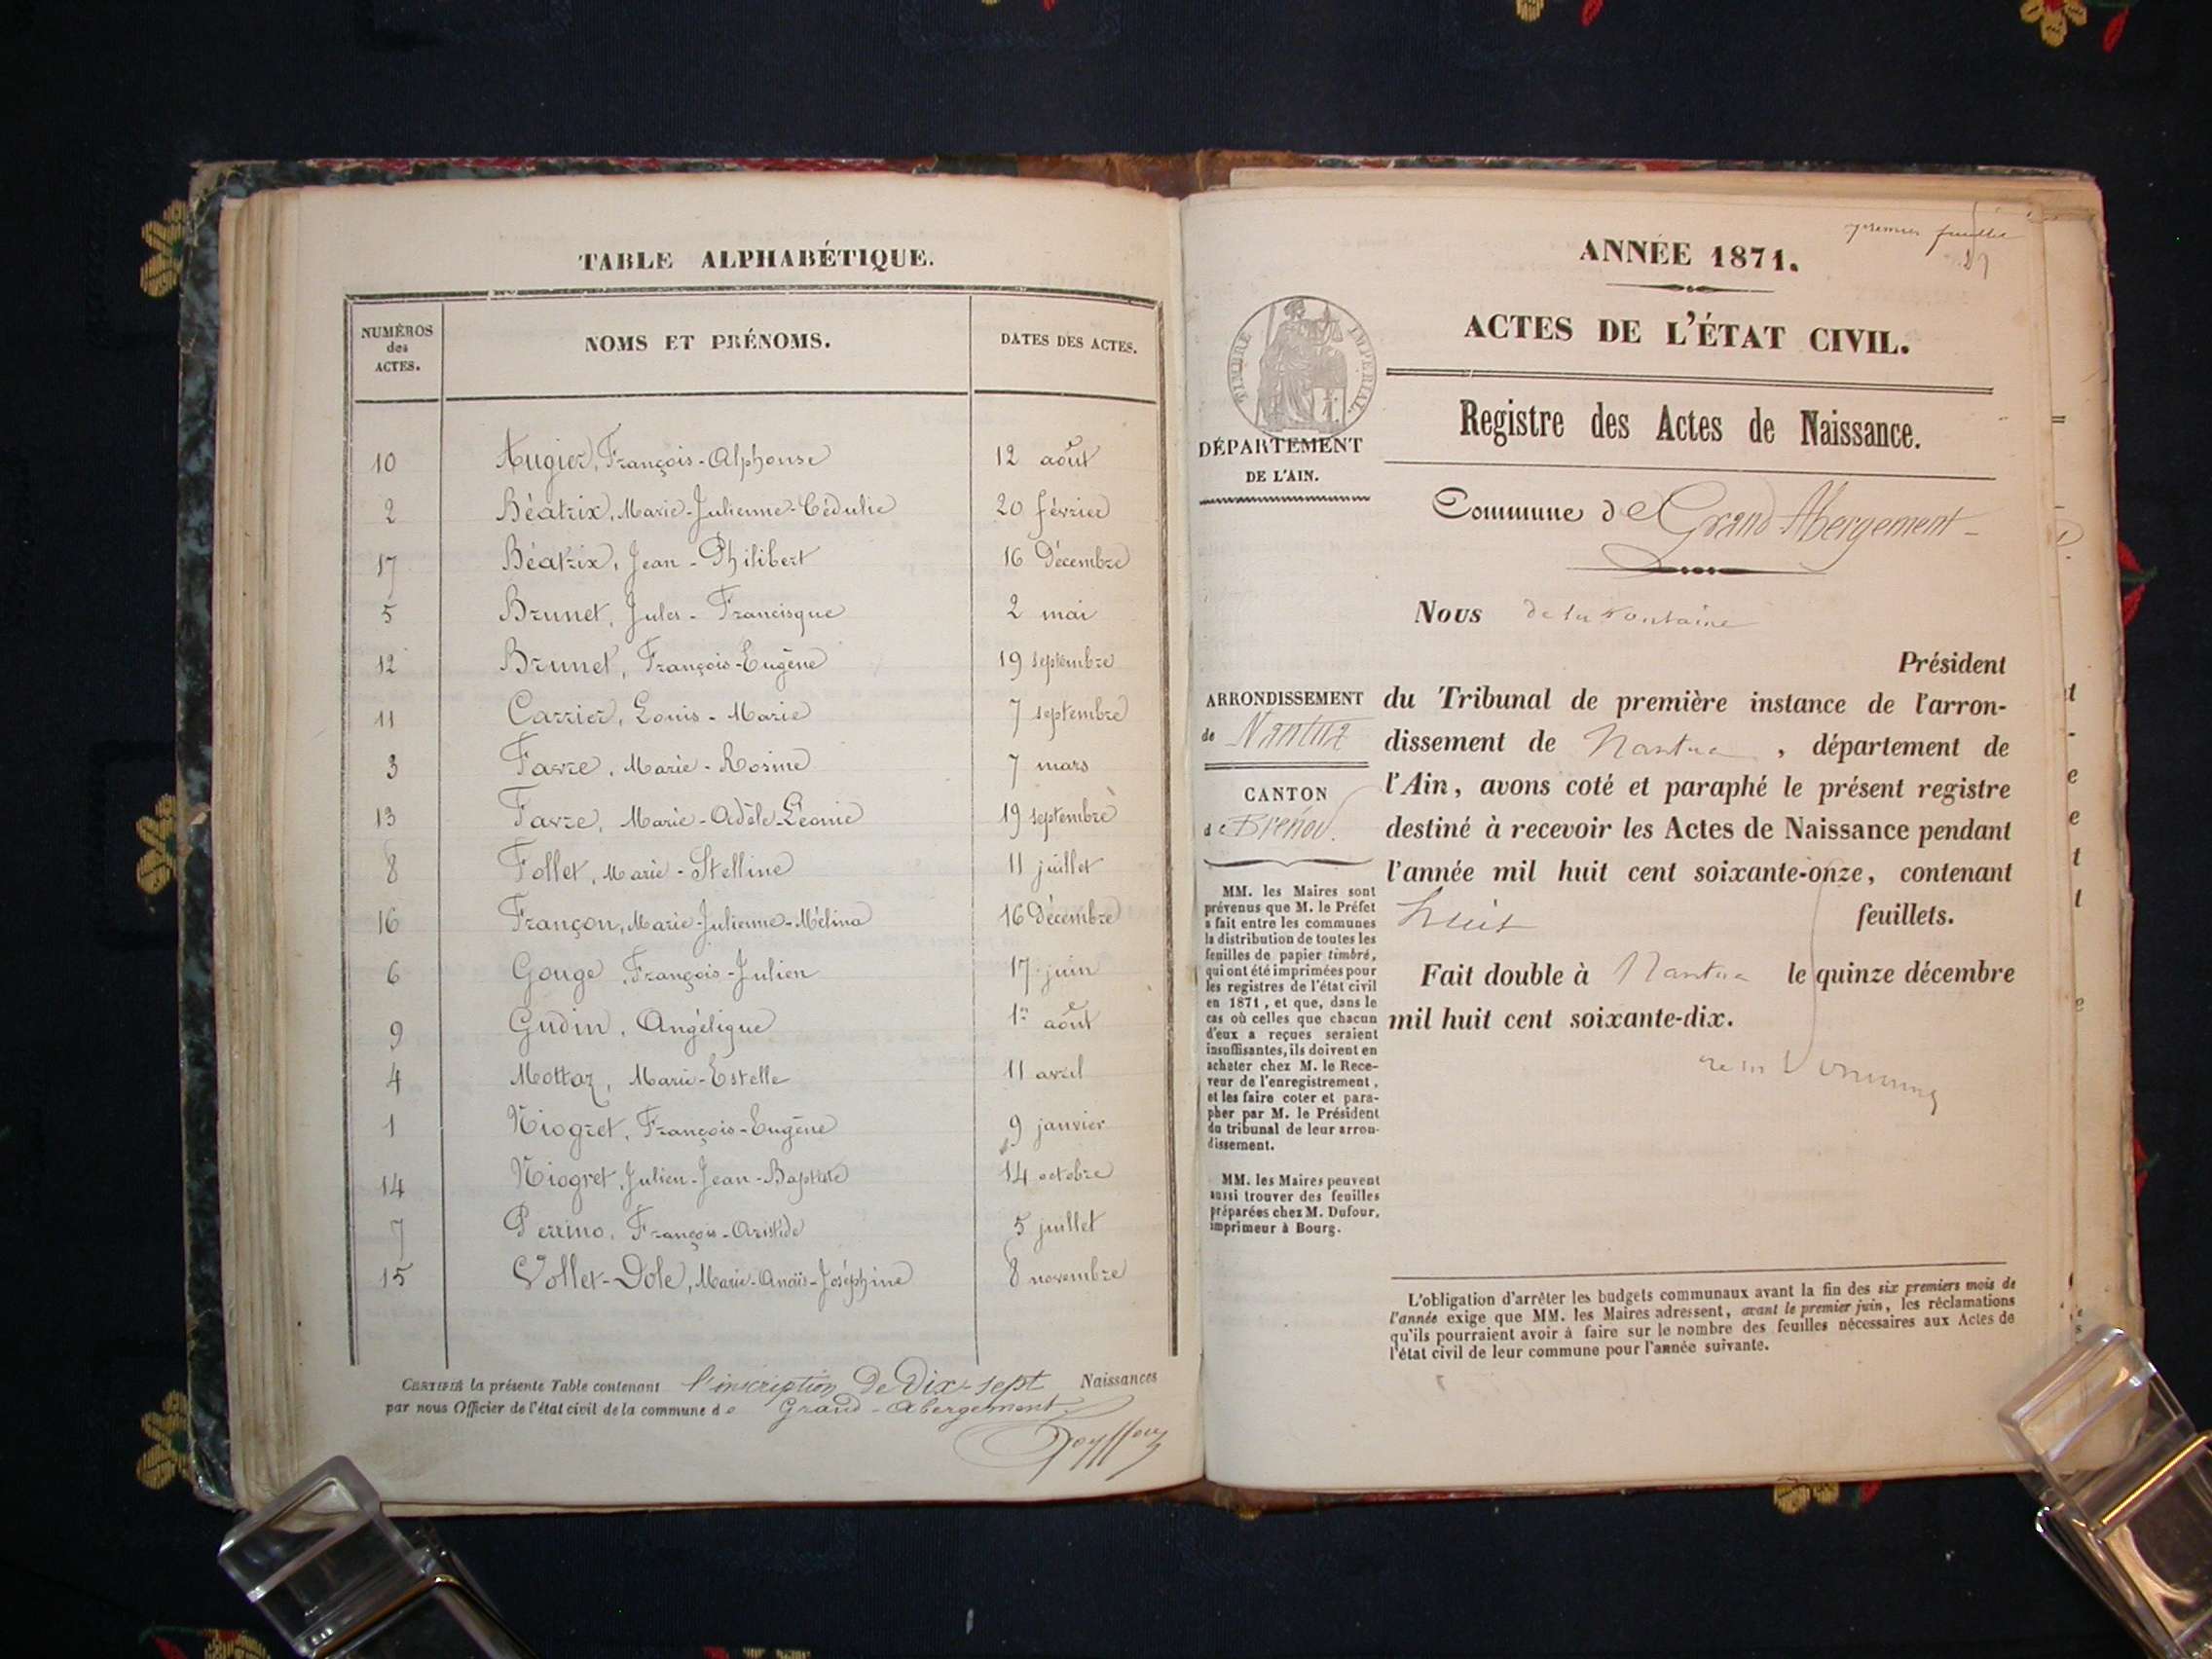 TABLE ALPHABÉTIQUE.
NUMÉROS des ACTES.
NOMS ET PRÉNOMS.
DATES DES ACTES.
10 Augier, François-Alphonse 12 août
2 Béatrix, Marie-Julienne-Cédulie 20 février
17 Béatrix, Jean-Philibert 16 Décembre
5 Brunet, Jules-Francisque 2 mai
12 Brunet, François-Eugène 19 septembre
11 Carrier, Louis-Marie 7 septembre
3 Favre, Marie-Rosine 7 mars
13 Favre, Marie-Adèle-Léonie 19 septembre
8 Follet, Marie-Stelline 11 juillet
16 Françon, Marie-Julienne-Mélina 16 Décembre
6 Gouge, François-Julien 17 juin
9 Gudin, Angélique 1er août
4 Mottaz, Marie-Estelle 11 avril
1 Niogret, François-Eugène 9 janvier
14 Niogret, Julien-Jean-Baptiste 14 octobre
7 Perrino, François-Aristide 5 juillet
15 Vollet-Dole, Marie-Anaïs-Joséphine 8 novembre
CERTIFIÉ la présente Table contenant l'inscription de Dix-sept Naissances
par nous Officier de l'état civil de la commune de Grand-Abergement
premier feuillet
ANNÉE 1871.
ACTES DE L'ÉTAT CIVIL.
TIMBRE IMPÉRIAL.
DÉPARTEMENT
DE L'AIN.
Registre des Actes de Naissance.
Commune de Grand Abergement
Nous de la Fontaine
Président
ARRONDISSEMENT
de Nantua
CANTON
de Brénod.
du Tribunal de première instance de l'arron-
dissement de Nantua, département de
l'Ain, avons coté et paraphé le présent registre
destiné à recevoir les Actes de Naissance pendant
l'année mil huit cent soixante-onze, contenant
huit feuillets.
Fait double à Nantua le quinze décembre
mil huit cent soixante-dix.
MM. les Maires sont
prévenus que M. le Préfet
a fait entre les communes
la distribution de toutes les
feuilles de papier timbré,
qui ont été imprimées pour
les registres de l'état civil
en 1871, et que, dans le
cas où celles que chacun
d'eux a reçues seraient
insuffisantes, ils doivent en
acheter chez M. le Rece-
veur de l'enregistrement,
et les faire coter et para-
pher par M. le Président
du tribunal de leur arron-
dissement.
MM. les Maires peuvent
aussi trouver des feuilles
préparées chez M. Dufour,
imprimeur à Bourg.
L'obligation d'arrêter les budgets communaux avant la fin des six premiers mois de
l'année exige que MM. les Maires adressent, avant le premier juin, les réclamations
qu'ils pourraient avoir à faire sur le nombre des feuilles nécessaires aux Actes de
l'état civil de leur commune pour l'année suivante.